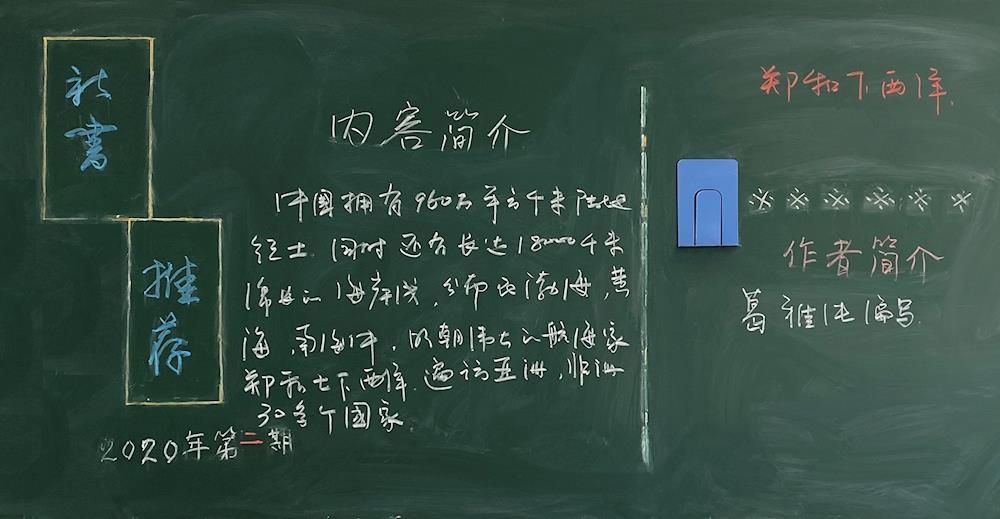 新书
推荐
2020年第二期
内容简介
中国拥有960万平方千米陆地
领土 同时还有长达18000千米
绵延的海岸线,分布在渤海,黄
海,南海中,明朝伟大的航海家
郑和七下西洋 遍访亚洲,非洲
30多个国家
郑和下西洋
※※※※※※
作者简介
葛雅 编写